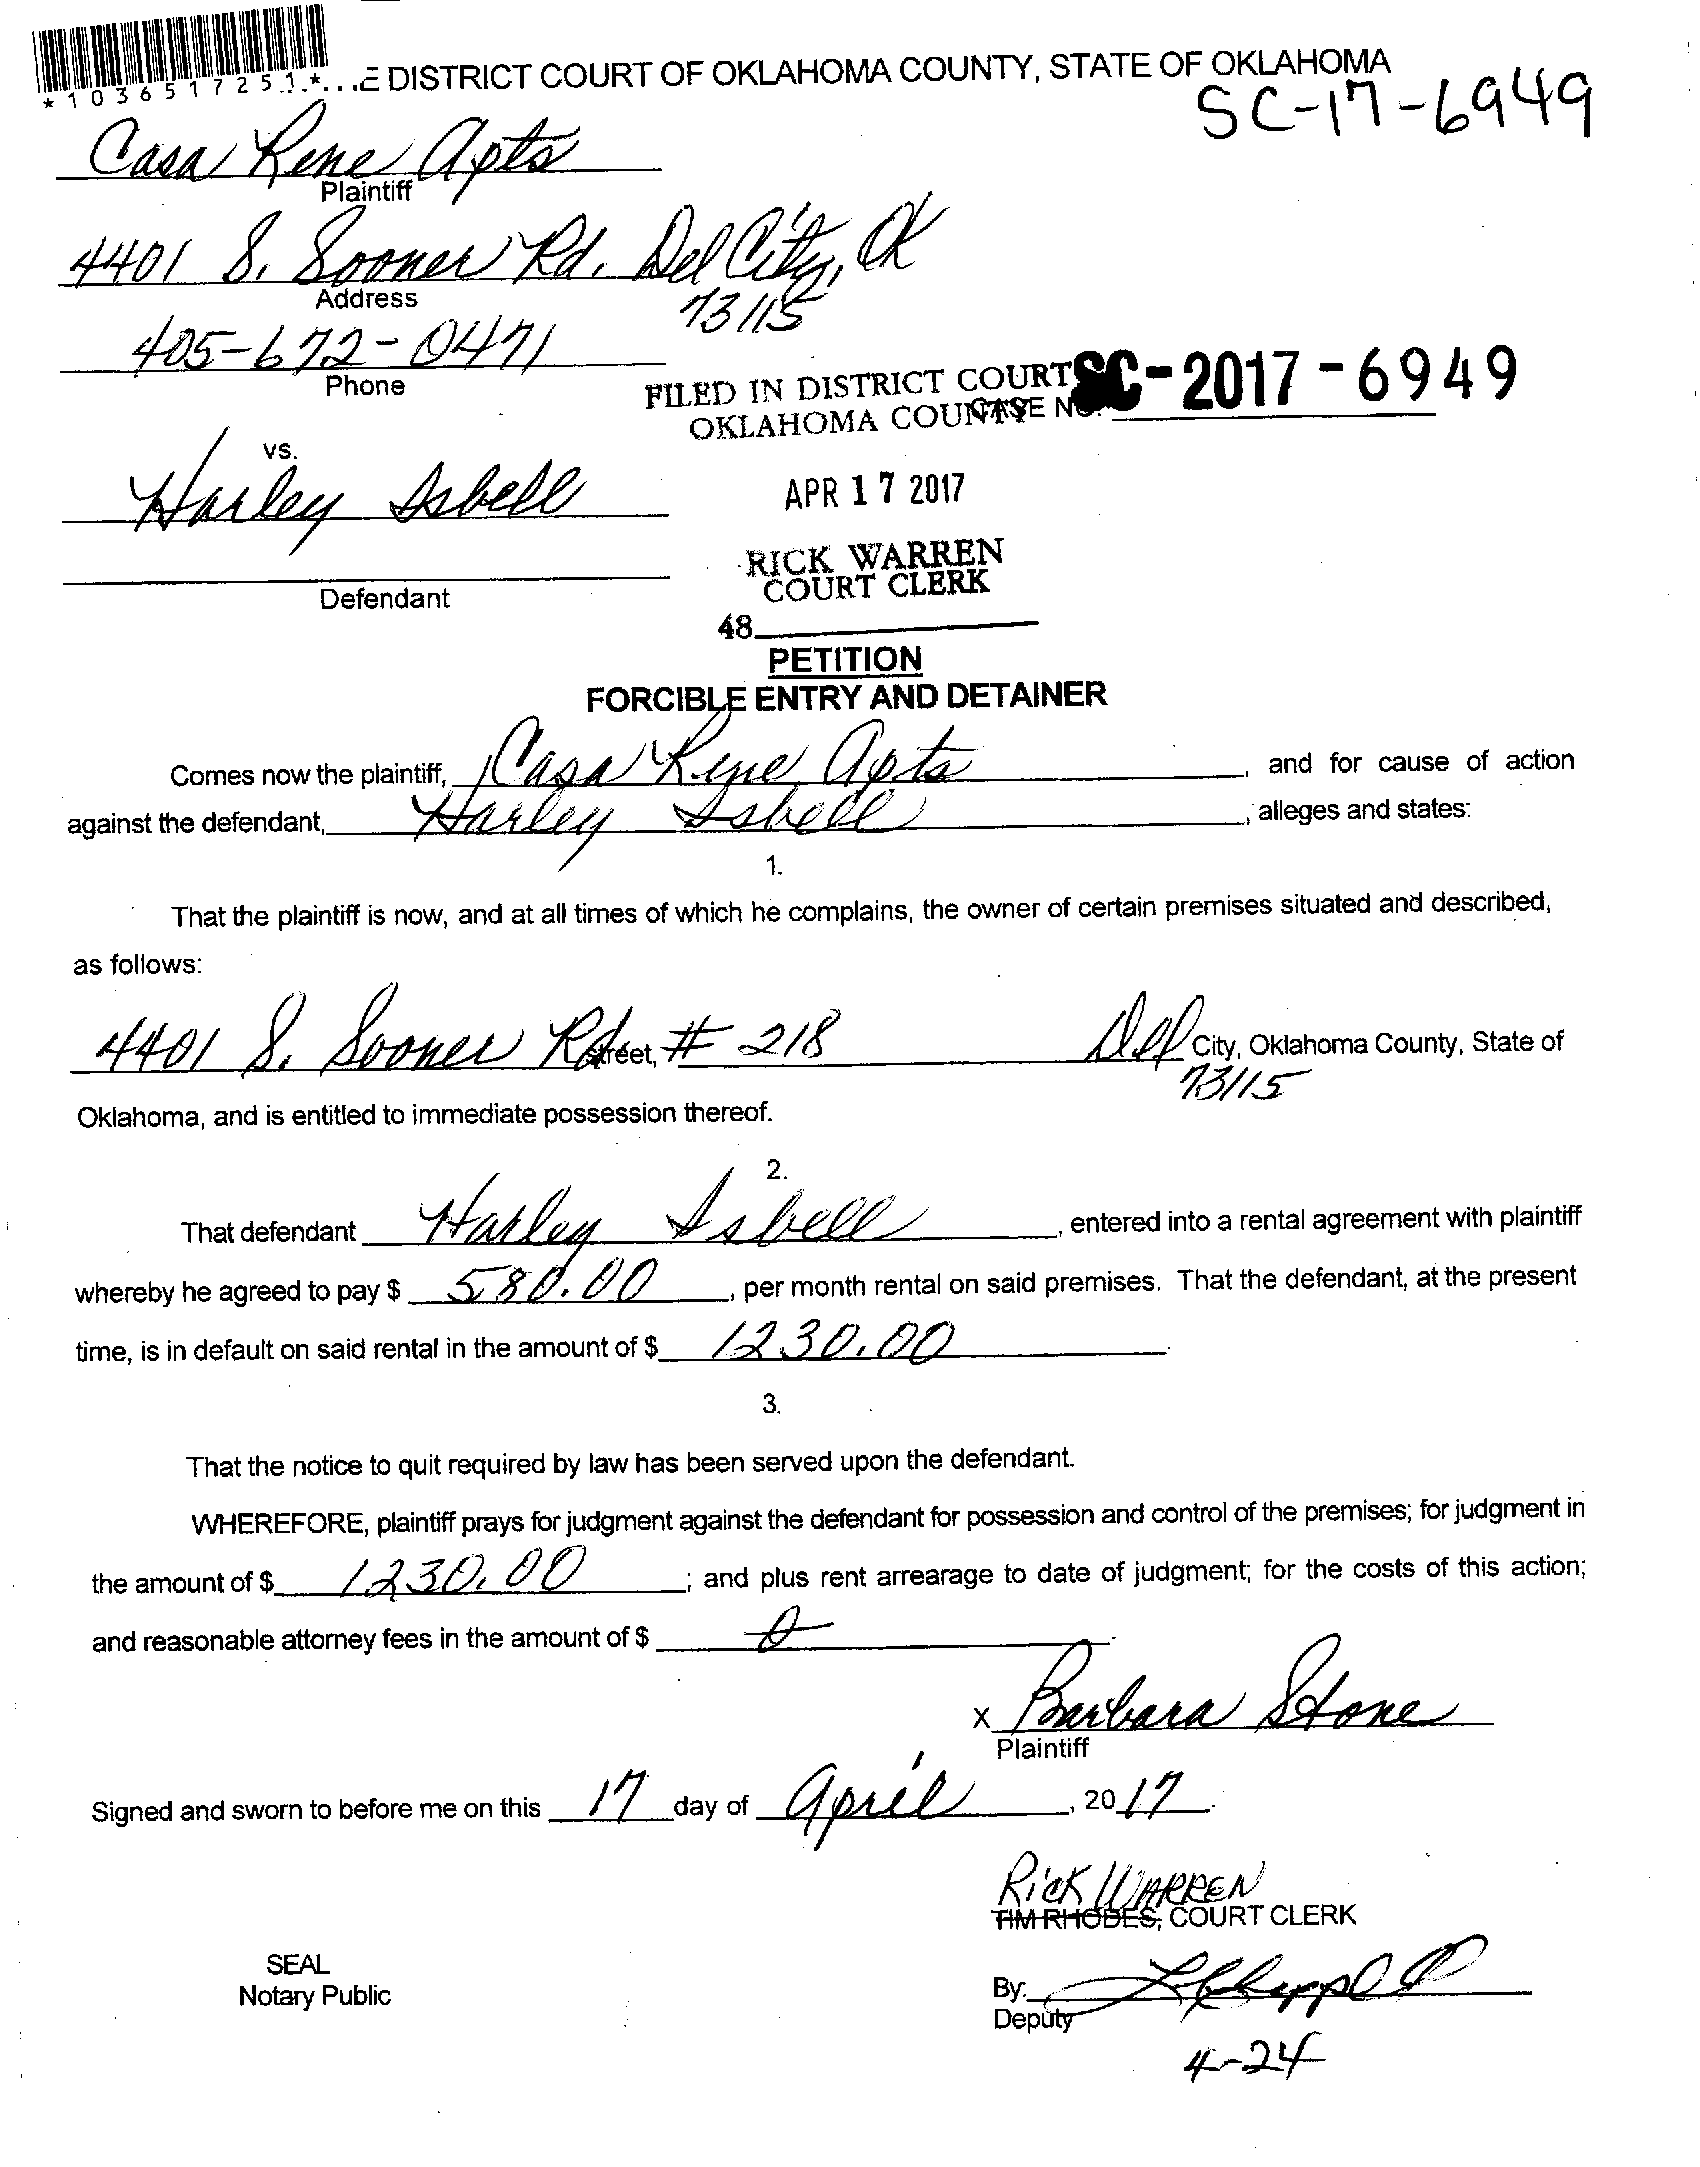 *1036517251*
...E DISTRICT COURT OF OKLAHOMA COUNTY, STATE OF OKLAHOMA
SC-17-6949
Casa Rene Apts
Plaintiff
4401 S. Sooner Rd. Del City, OK
73115
Address
405-672-0471
Phone
FILED IN DISTRICT COURT
OKLAHOMA COUNTY
CASE NO. SC-2017-6949
vs.
Harley Isbell
APR 17 2017
RICK WARREN
COURT CLERK
Defendant
48
PETITION
FORCIBLE ENTRY AND DETAINER
Comes now the plaintiff, Casa Rene Apts, and for cause of action
against the defendant, Harley Isbell, alleges and states:
1.
That the plaintiff is now, and at all times of which he complains, the owner of certain premises situated and described,
as follows:
4401 S. Sooner Rd. Street, # 218 Del City, Oklahoma County, State of
73115
Oklahoma, and is entitled to immediate possession thereof.
2.
That defendant Harley Isbell, entered into a rental agreement with plaintiff
whereby he agreed to pay $ 580.00, per month rental on said premises. That the defendant, at the present
time, is in default on said rental in the amount of $ 1230.00
3.
That the notice to quit required by law has been served upon the defendant.
WHEREFORE, plaintiff prays for judgment against the defendant for possession and control of the premises; for judgment in
the amount of $ 1230.00; and plus rent arrearage to date of judgment; for the costs of this action;
and reasonable attorney fees in the amount of $ 0
x Barbara Stone
Plaintiff
Signed and sworn to before me on this 17 day of April, 2017.
Rick WARREN
TIM RHODES, COURT CLERK
SEAL
Notary Public
By:
Deputy
4-24